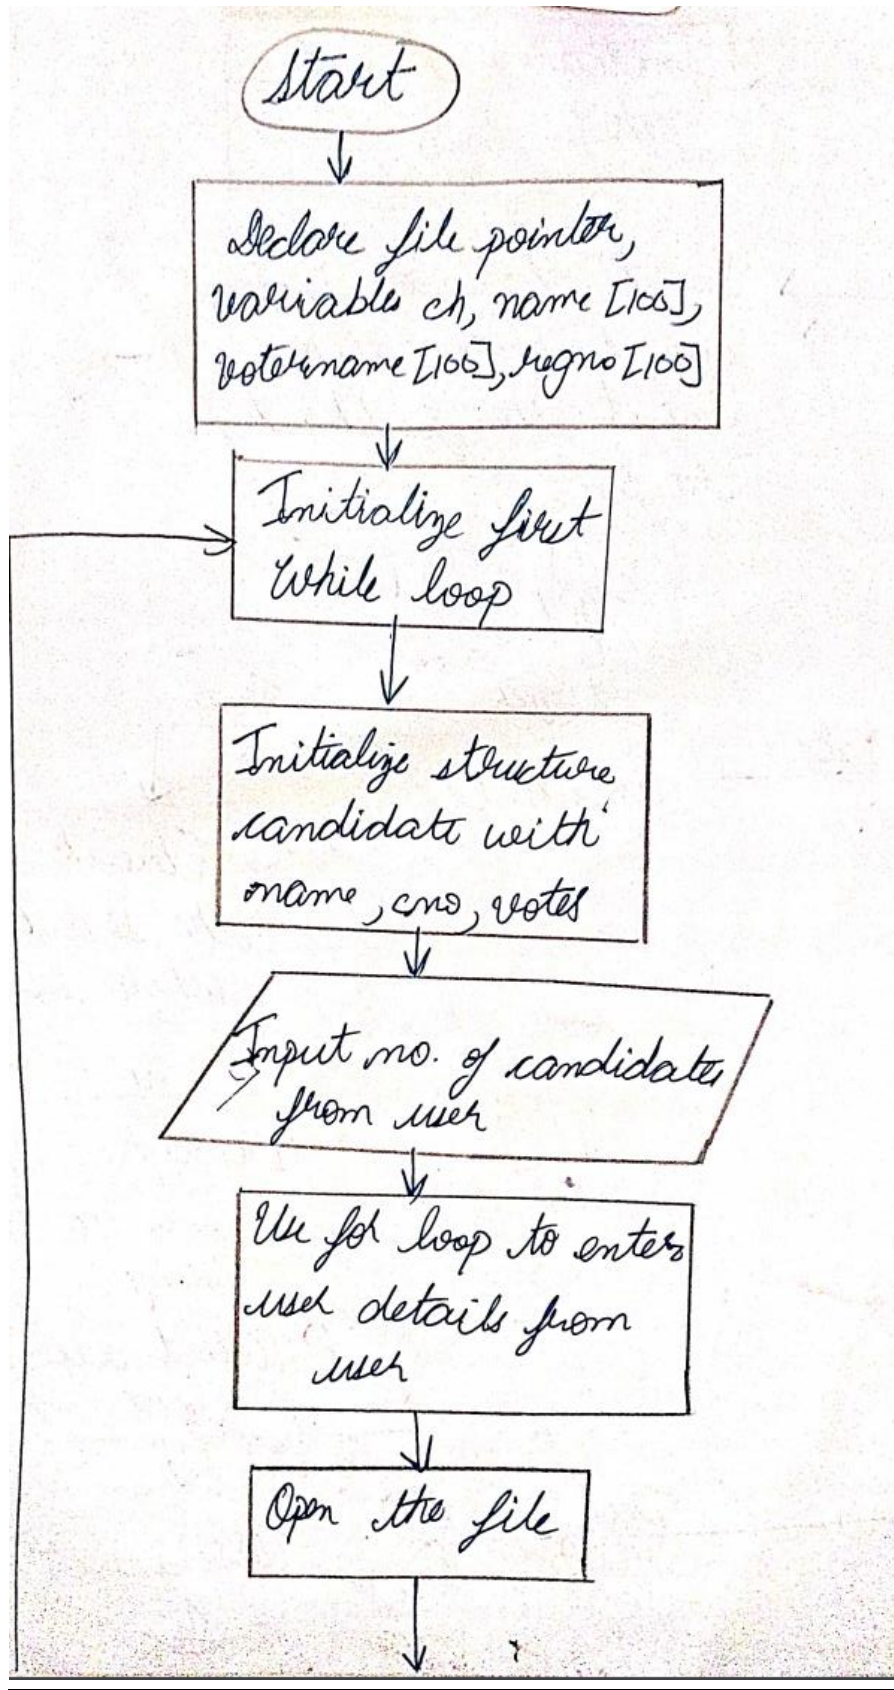 Start
Declare file pointer,
variables ch, name [100],
votername [100], regno [100]
Initialize first
While loop
Initialize structure
candidate with
name, cno, votes
Input no. of candidates
from user
Use for loop to enter
user details from
user
Open the file